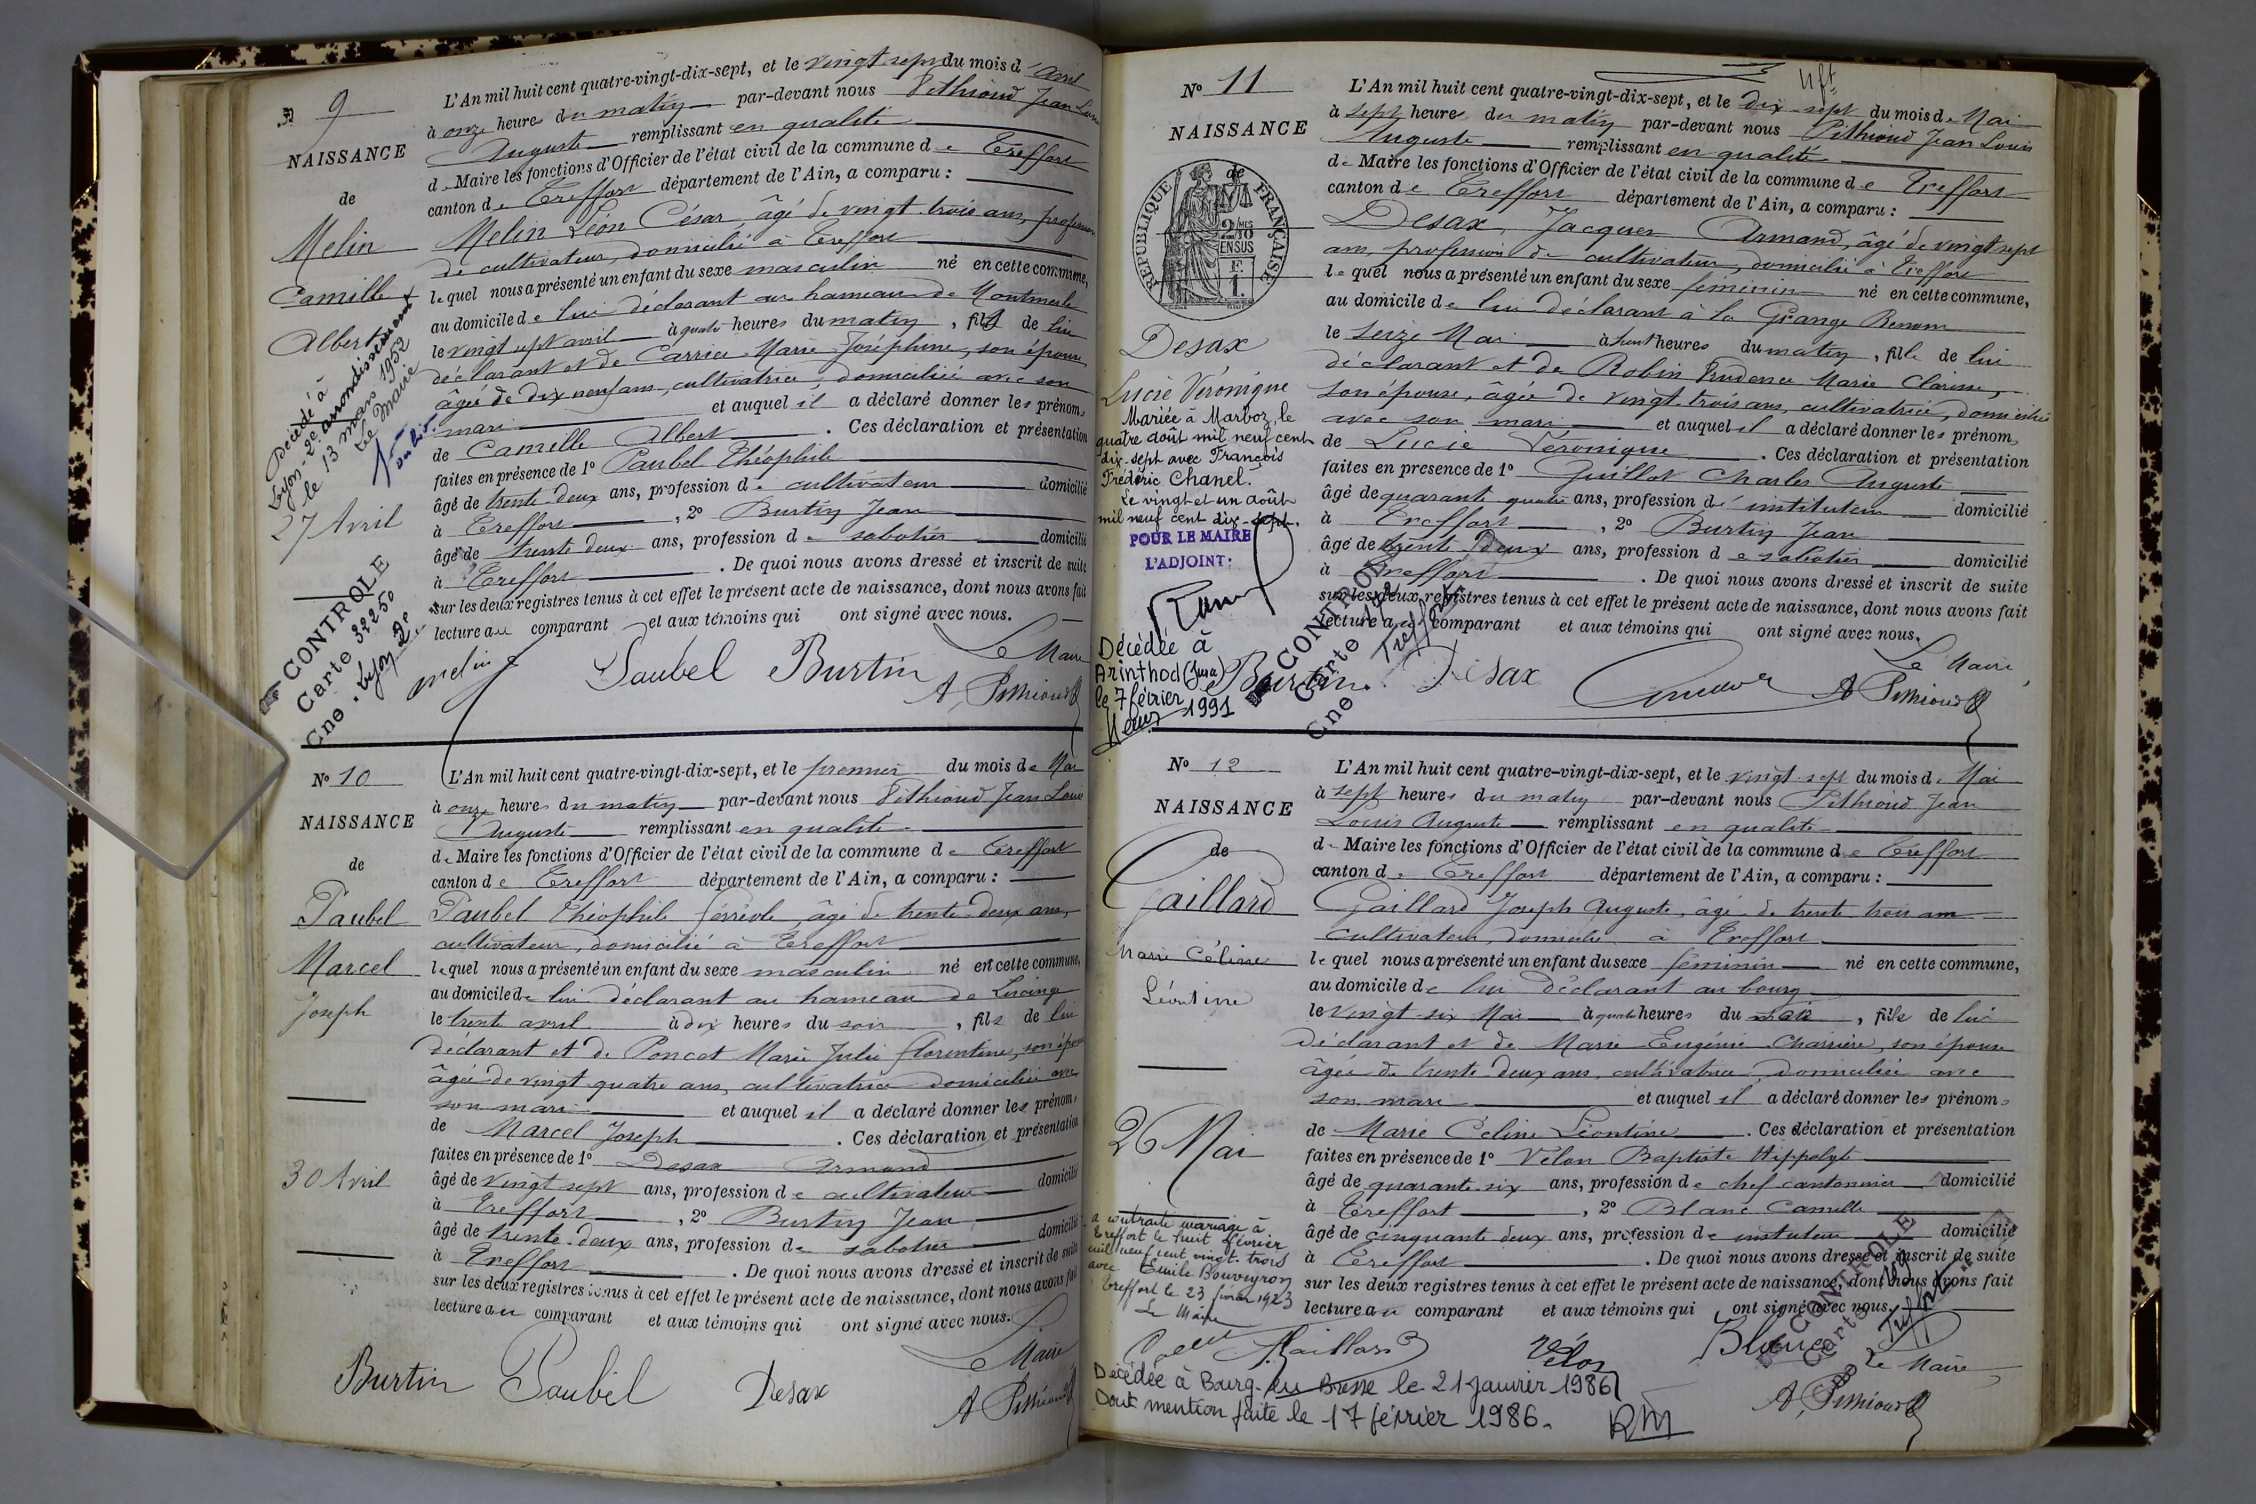 N° 9
NAISSANCE
de
Melin
Camille
Albert
Décédé à
Lyon - 2e arrondissement
le 13 mars 1952
Le Maire
27 Avril
CONTROLE
Carte 32250
Cne. Lyon 2e
L'An mil huit cent quatre-vingt-dix-sept, et le vingt sept du mois d'avril
à onze heures du matin par-devant nous Pithioud Jean Louis
Auguste remplissant en qualité
de Maire les fonctions d'Officier de l'état civil de la commune de Treffort
canton de Treffort département de l'Ain, a comparu :
Melin Léon César âgé de vingt-trois ans, profession
de cultivateur, domicilié à Treffort
lequel nous a présenté un enfant du sexe masculin né en cette commune,
au domicile de lui déclarant au hameau de Montmerle
le vingt sept avril à quatre heures du matin, fils de lui
déclarant et de Carrier Marie Joséphine, son épouse
âgée de dix neuf ans, cultivatrice, domiciliée avec son
mari et auquel il a déclaré donner les prénoms
de Camille Albert. Ces déclaration et présentation
faites en présence de 1° Paubel Théophile
âgé de trente-deux ans, profession de cultivateur domicilié
à Treffort, 2° Burtin Jean
âgé de trente deux ans, profession de sabotier domicilié
à Treffort. De quoi nous avons dressé et inscrit de suite
sur les deux registres tenus à cet effet le présent acte de naissance, dont nous avons fait
lecture au comparant et aux témoins qui ont signé avec nous.
Le Maire
melin Paubel Burtin A. Pithioud
N° 10
NAISSANCE
de
Paubel
Marcel
Joseph
30 Avril
L'An mil huit cent quatre-vingt-dix-sept, et le premier du mois de Mai
à onze heures du matin par-devant nous Pithioud Jean Louis
Auguste remplissant en qualité
de Maire les fonctions d'Officier de l'état civil de la commune de Treffort
canton de Treffort département de l'Ain, a comparu :
Paubel Théophile Ferréole âgé de trente-deux ans,
cultivateur, domicilié à Treffort
lequel nous a présenté un enfant du sexe masculin né en cette commune,
au domicile de lui déclarant au hameau de Lucinge
le trente avril à dix heures du soir, fils de lui
déclarant et de Poncet Marie Julie Florentine, son épouse
âgée de vingt quatre ans, cultivatrice domiciliée avec
son mari et auquel il a déclaré donner les prénoms
de Marcel Joseph. Ces déclaration et présentation
faites en présence de 1° Desax Armand
âgé de vingt sept ans, profession de cultivateur domicilié
à Treffort, 2° Burtin Jean
âgé de trente-deux ans, profession de sabotier domicilié
à Treffort. De quoi nous avons dressé et inscrit de suite
sur les deux registres tenus à cet effet le présent acte de naissance, dont nous avons fait
lecture au comparant et aux témoins qui ont signé avec nous.
Le Maire
Burtin Paubel Desax A. Pithioud
N° 11
NAISSANCE
de
REPUBLIQUE FRANÇAISE
2/10 EN SUS
F. 1.
Desax
Lucie Véronique
Mariée à Marboz, le
quatre août mil neuf cent
dix-sept avec François
Frédéric Chanel.
Le vingt et un août
mil neuf cent dix-sept.
POUR LE MAIRE
L'ADJOINT:
Décédée à
Arinthod (Jura)
le 7 février
1991
CONTROLE
Carte
Cne Treffort
L'An mil huit cent quatre-vingt-dix-sept, et le dix-sept du mois de Mai
à sept heures du matin par-devant nous Pithioud Jean Louis
Auguste remplissant en qualité
de Maire les fonctions d'Officier de l'état civil de la commune de Treffort
canton de Treffort département de l'Ain, a comparu :
Desax, Jacques Armand, âgé de vingt sept
ans, profession de cultivateur, domicilié à Treffort
lequel nous a présenté un enfant du sexe féminin né en cette commune,
au domicile de lui déclarant à la Grange Benom
le seize Mai à huit heures du matin, fille de lui
déclarant et de Robin Prudence Marie Clarisse,
son épouse, âgée de vingt-trois ans, cultivatrice, domiciliée
avec son mari et auquel il a déclaré donner les prénoms
de Lucie Véronique. Ces déclaration et présentation
faites en présence de 1° Guillot Charles Auguste
âgé de quarante quatre ans, profession d'instituteur domicilié
à Treffort, 2° Burtin Jean
âgé de trente deux ans, profession de sabotier domicilié
à Treffort. De quoi nous avons dressé et inscrit de suite
sur les deux registres tenus à cet effet le présent acte de naissance, dont nous avons fait
lecture au comparant et aux témoins qui ont signé avec nous.
Le Maire
Burtin Desax A. Pithioud
N° 12
NAISSANCE
de
Gaillard
Marie Céline
Léontine
26 Mai
a contracté mariage à
Treffort le huit février
mil neuf cent vingt-trois
avec Emile Bouveyron
Treffort le 23 février 1923
Le Maire
L'An mil huit cent quatre-vingt-dix-sept, et le vingt-sept du mois de Mai
à sept heures du matin par-devant nous Pithioud Jean
Louis Auguste remplissant en qualité
de Maire les fonctions d'Officier de l'état civil de la commune de Treffort
canton de Treffort département de l'Ain, a comparu :
Gaillard Joseph Auguste, âgé de trente trois ans
cultivateur, domicilié à Treffort
lequel nous a présenté un enfant du sexe féminin né en cette commune,
au domicile de lui déclarant au bourg
le vingt-six Mai à quatre heures du soir, fille de lui
déclarant et de Marie Eugénie Charrière, son épouse
âgée de trente deux ans, cultivatrice domiciliée avec
son mari et auquel il a déclaré donner les prénoms
de Marie Céline Léontine. Ces déclaration et présentation
faites en présence de 1° Vélon Baptiste Hippolyte
âgé de quarante-six ans, profession de chef cantonnier domicilié
à Treffort, 2° Blanc Camille
âgé de cinquante deux ans, profession de instituteur domicilié
à Treffort. De quoi nous avons dressé et inscrit de suite
sur les deux registres tenus à cet effet le présent acte de naissance, dont nous avons fait
lecture au comparant et aux témoins qui ont signé avec nous.
CONTROLE
Carte 109
Cne Treffort
Gaillard Vélon Blanc Le Maire
A. Pithioud
Décédée à Bourg-en-Bresse le 21 janvier 1986
Dont mention faite le 17 février 1986.
RM